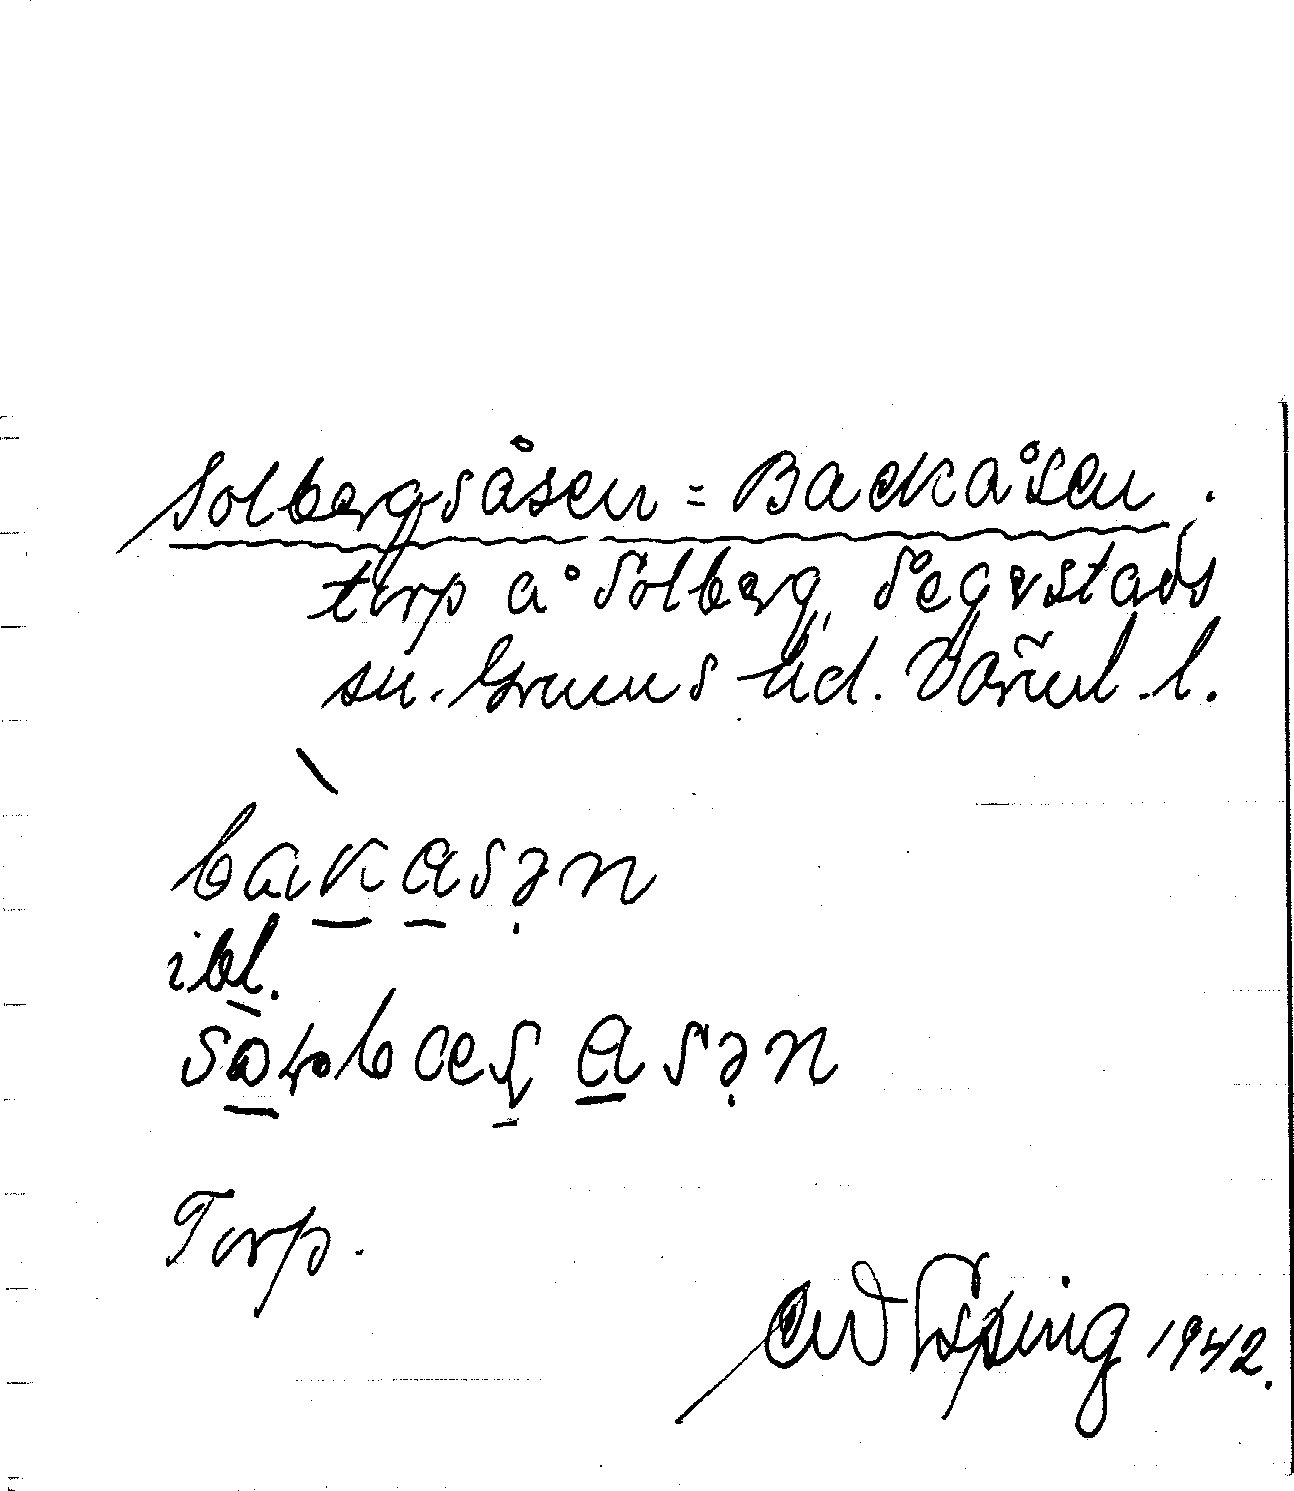 Solbergsåsen = Backåsen.
torp å Solberg, Segerstads
sn. Grums hd. Värml. l.
bakasən
ibl.
Torp.
1942.